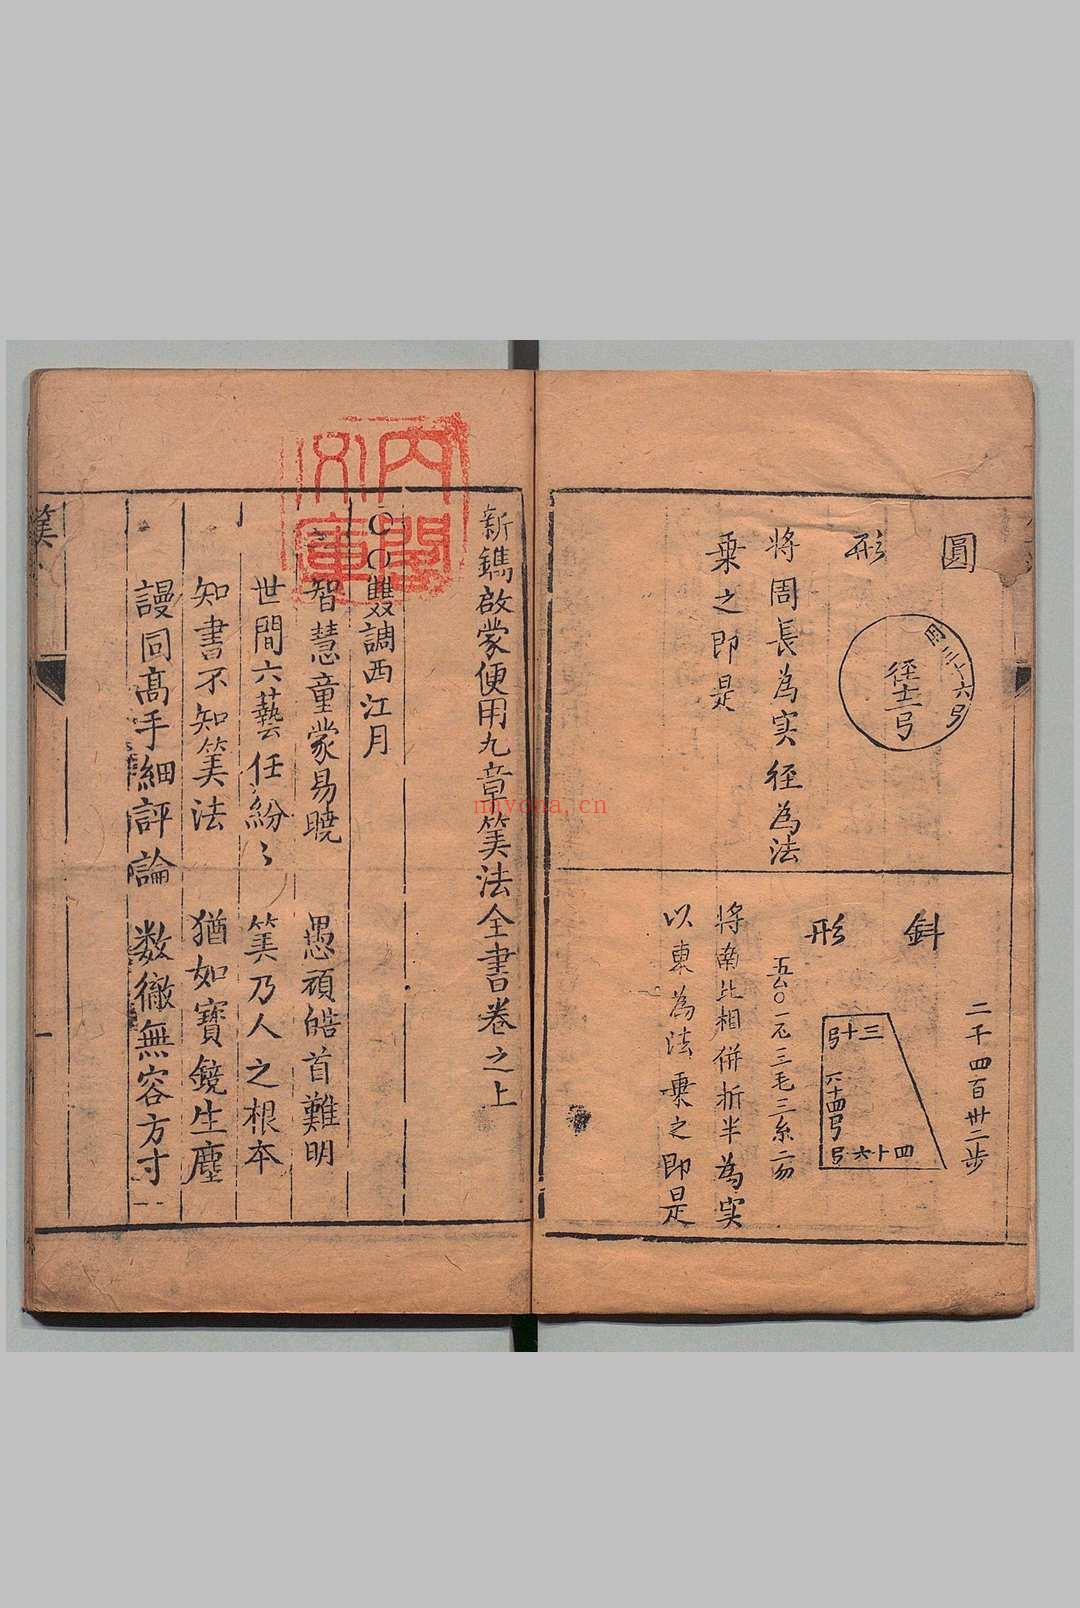 圓
形
周三十六弓
徑十二弓
將周長為实徑為法
乘之即是
斜
形
二千四百卅二步
三十弓
六十四弓
四十六弓
將南北相併折半為実
以東為法乘之即是
新鐫啟蒙便用九章筭法全書卷之上
○○雙調西江月
智慧童蒙易曉 愚頑皓首難明
世間六藝任紛〻 筭乃人之根本
知書不知筭法 猶如寳鏡生塵
謾同髙手細評論 数徹無容方寸
一
内閣
文庫
nayona.cn